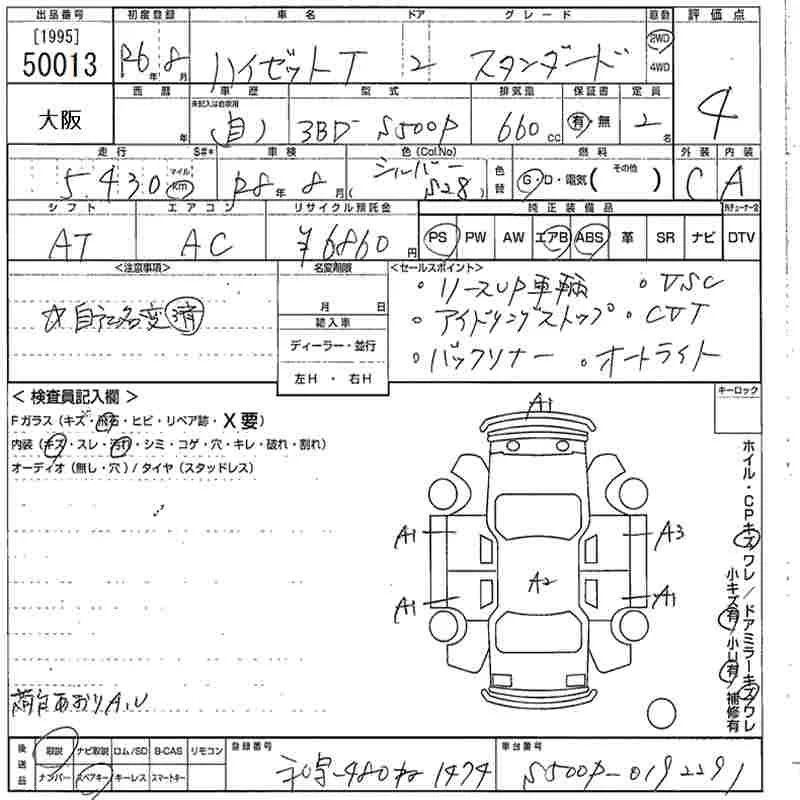 出品番号 初度登録 車名 ドア グレード 駆動 評価点
[1995]
50013 R6年8月 ハイゼットT 2 スタンダード 2WD 4WD 4
西暦 車歴 型式 排気量 保証書 定員
未記入は自家用
大阪 年 (自) 3BD-S500P 660cc 有・無 2名
走行 S#* 車検 色(Col.No) 燃料 外装 内装
5430 マイル km R8年8月 シルバー (S28) 色替 G・D・電気( その他 ) C A
シフト エアコン リサイクル預託金 純正装備品
AT AC ¥6860円 PS PW AW エアB ABS 革 SR ナビ DTV
<注意事項> 名変期限 <セールスポイント>
☆自宅名変済
月 日
輸入車
ディーラー・並行
左H ・ 右H
・リースUP車輌 ・VSC
・アイドリングストップ ・CVT
・バックソナー ・オートライト
< 検査員記入欄 > キーロック
Fガラス(キズ・飛石・ヒビ・リペア跡・X要)
内装(キズ・スレ・汚れ・シミ・コゲ・穴・キレ・破れ・割れ)
オーディオ(無し・穴)/タイヤ(スタッドレス)
A1
A1 A3
A2
A1 A1
ホイル・CPキズワレ/ドアミラーキズワレ
小キズ有/小U有/補修有
荷台あおりA,U
後送品 取説 ナビ取説 ロム/SD B-CAS リモコン 登録番号 車台番号
ナンバー スペアキー キーレス スマートキー 1474 S500P-0192291